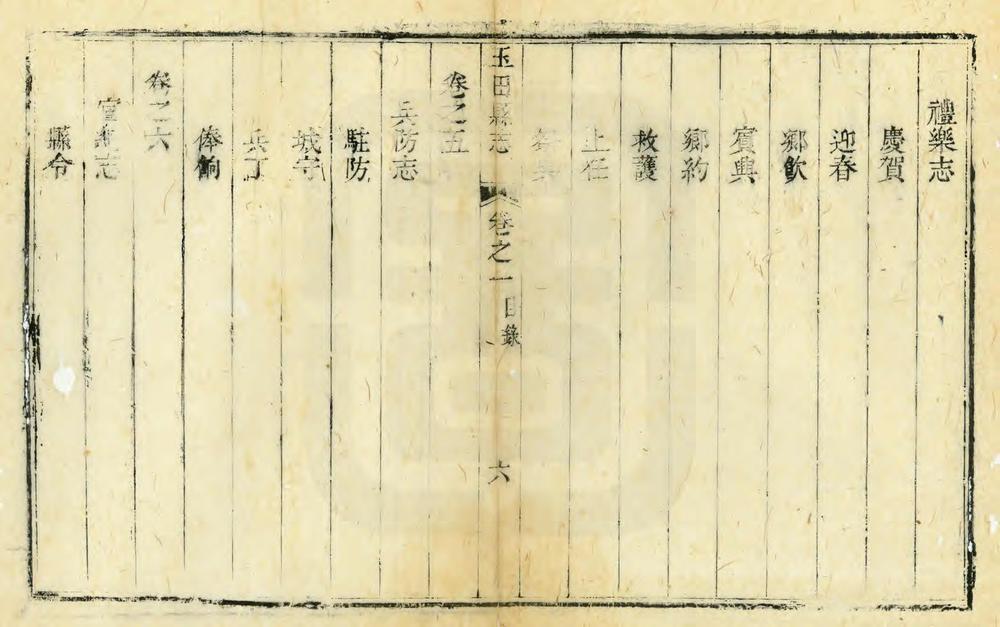 禮樂志
慶賀
迎春
鄉飲
賓興
鄉約
救護
上任
玉田縣志
卷之一
目錄
六
卷之五
兵防志
駐防
城守
兵丁
俸餉
卷之六
官紀志
縣令